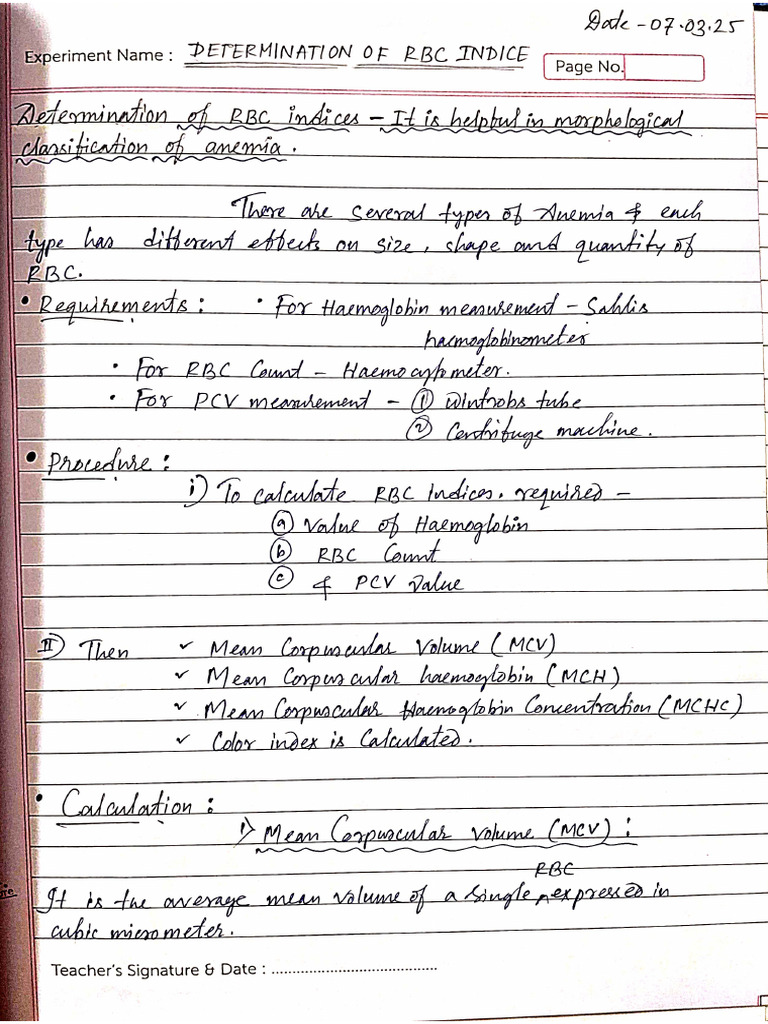 Date - 07.03.25
Experiment Name : DETERMINATION OF RBC INDICE
Page No.
Determination of RBC indices - It is helpful in morphological
classification of anemia.
There are several types of Anemia & each
type has different effects on size, shape and quantity of
RBC.
• Requirements : • For Haemoglobin measurement - Sahlis
haemoglobinometer
• For RBC Count - Haemocytometer.
• For PCV measurement - ① Wintrobs tube
② Centrifuge machine.
• Procedure :
i) To calculate RBC indices, required -
ⓐ Value of Haemoglobin
ⓑ RBC Count
ⓒ & PCV value
II) Then ✓ Mean Corpuscular Volume (MCV)
✓ Mean Corpuscular haemoglobin (MCH)
✓ Mean Corpuscular Haemoglobin Concentration (MCHC)
✓ Color index is Calculated.
• Calculation :
1) Mean Corpuscular volume (MCV) :
RBC
It is the average mean volume of a single ^ expressed in
cubic micrometer.
Teacher's Signature & Date : ......................................